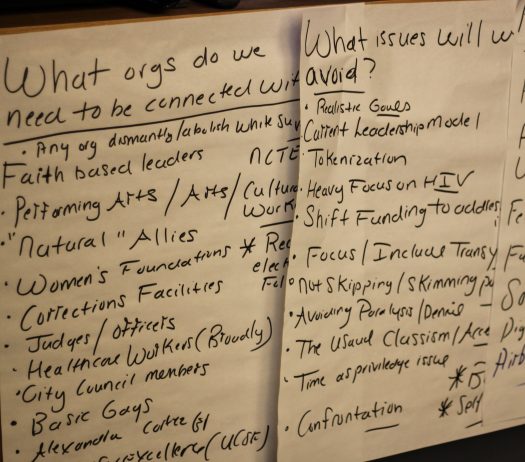 What orgs do we
need to be connected wit
• Any org dismantly/abolish white su
Faith based leaders
NCTE
• Performing Arts / Arts / Cultura
Work
• "Natural" Allies
• Women's Foundations * Re
elec
• Corrections Facilities
• Judges/officers
• Healthcare Workers (Broadly)
• City Council members
• Basic Gays
• Alexandra
(UCSF)
What issues will w
avoid?
• Realistic Goals
Current Leadership Model
• Tokenization
• Heavy Focus on HIV
• Shift Funding to addres
• Focus / Include Trans
• Not Skipping / Skimming
• Avoiding Paralysis / Denial
• The Usual Classism /
• Time as priviledge issue
• Confrontation